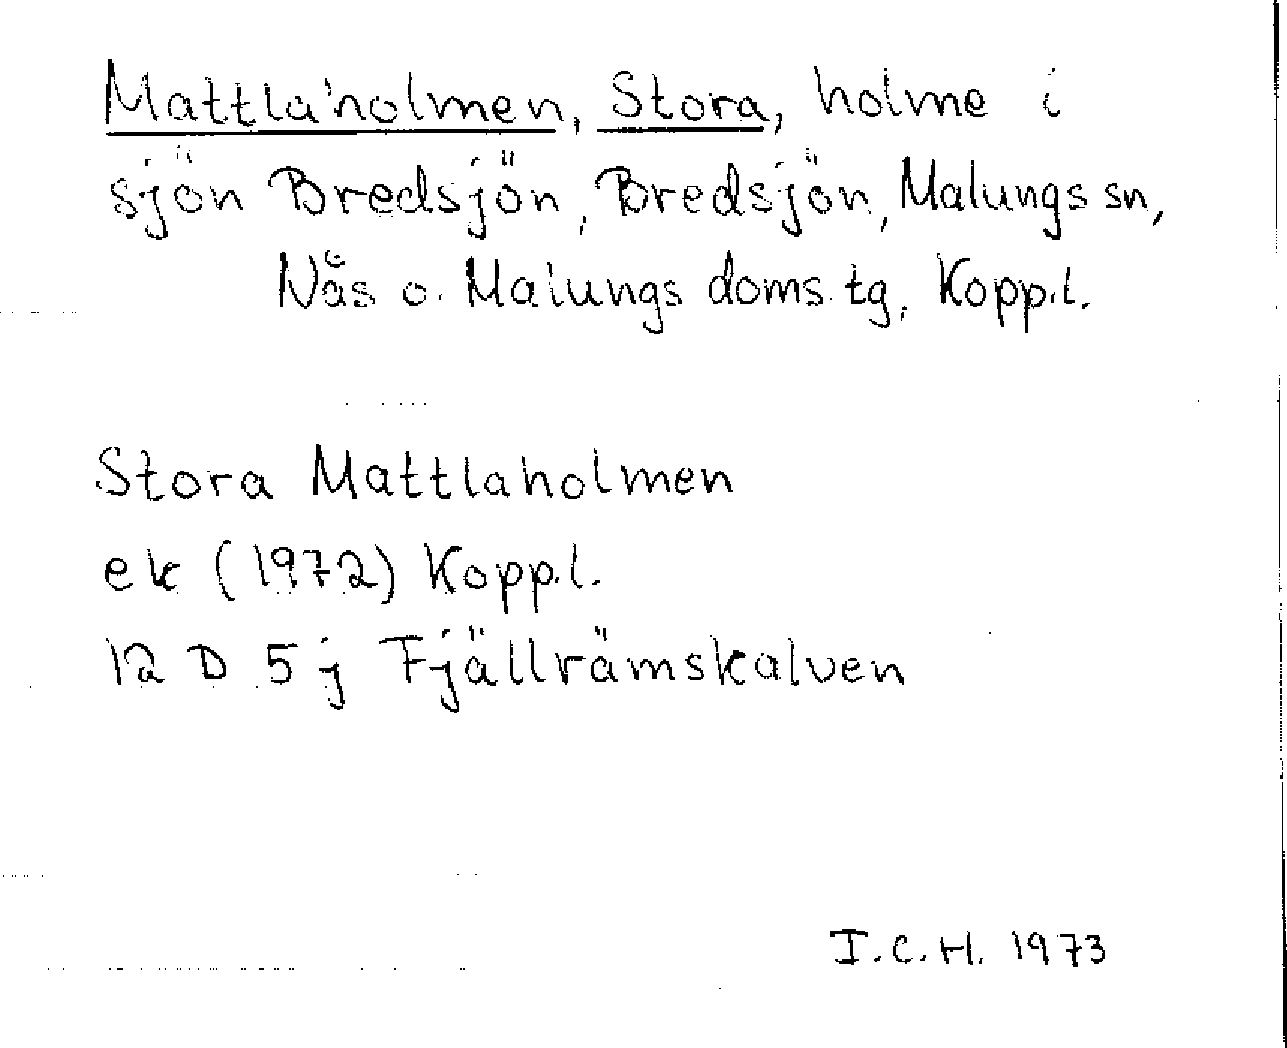 Mattlaholmen, Stora, holme i
sjön Bredsjön, Bredsjön, Malungs sn,
Nås o. Malungs doms.tg, Kopp.l.
Stora Mattlaholmen
ek (1972) Kopp.l.
12 D 5 j Fjällrämskalven
I.C.H. 1973